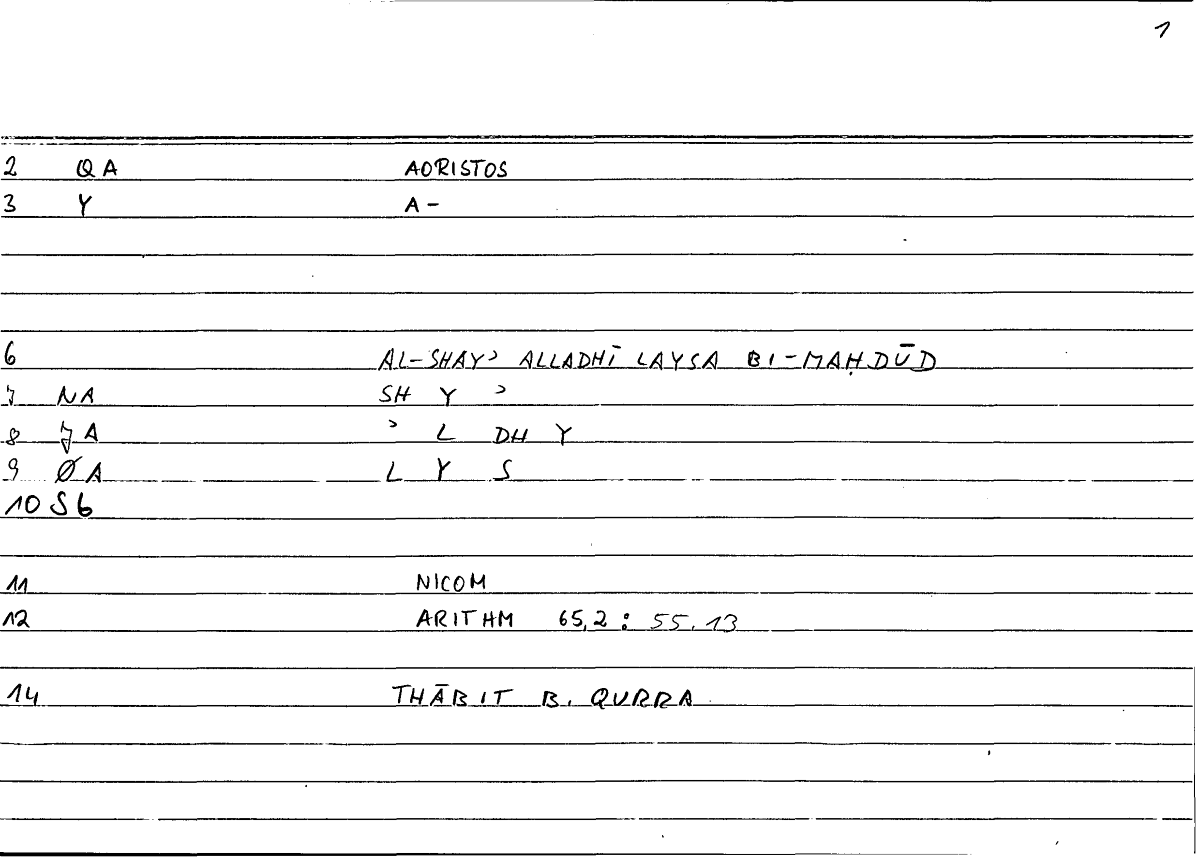 1
2 QA AORISTOS
3 Y A-
6 AL-SHAYʾ ALLADHĪ LAYSA BI-MAḤDŪD
7 NA SH Y ʾ
8 JA ʾ L DH Y
9 ØA L Y S
10 S6
11 NICOM
12 ARITHM 65,2 : 55.13
14 THĀBIT B. QURRA